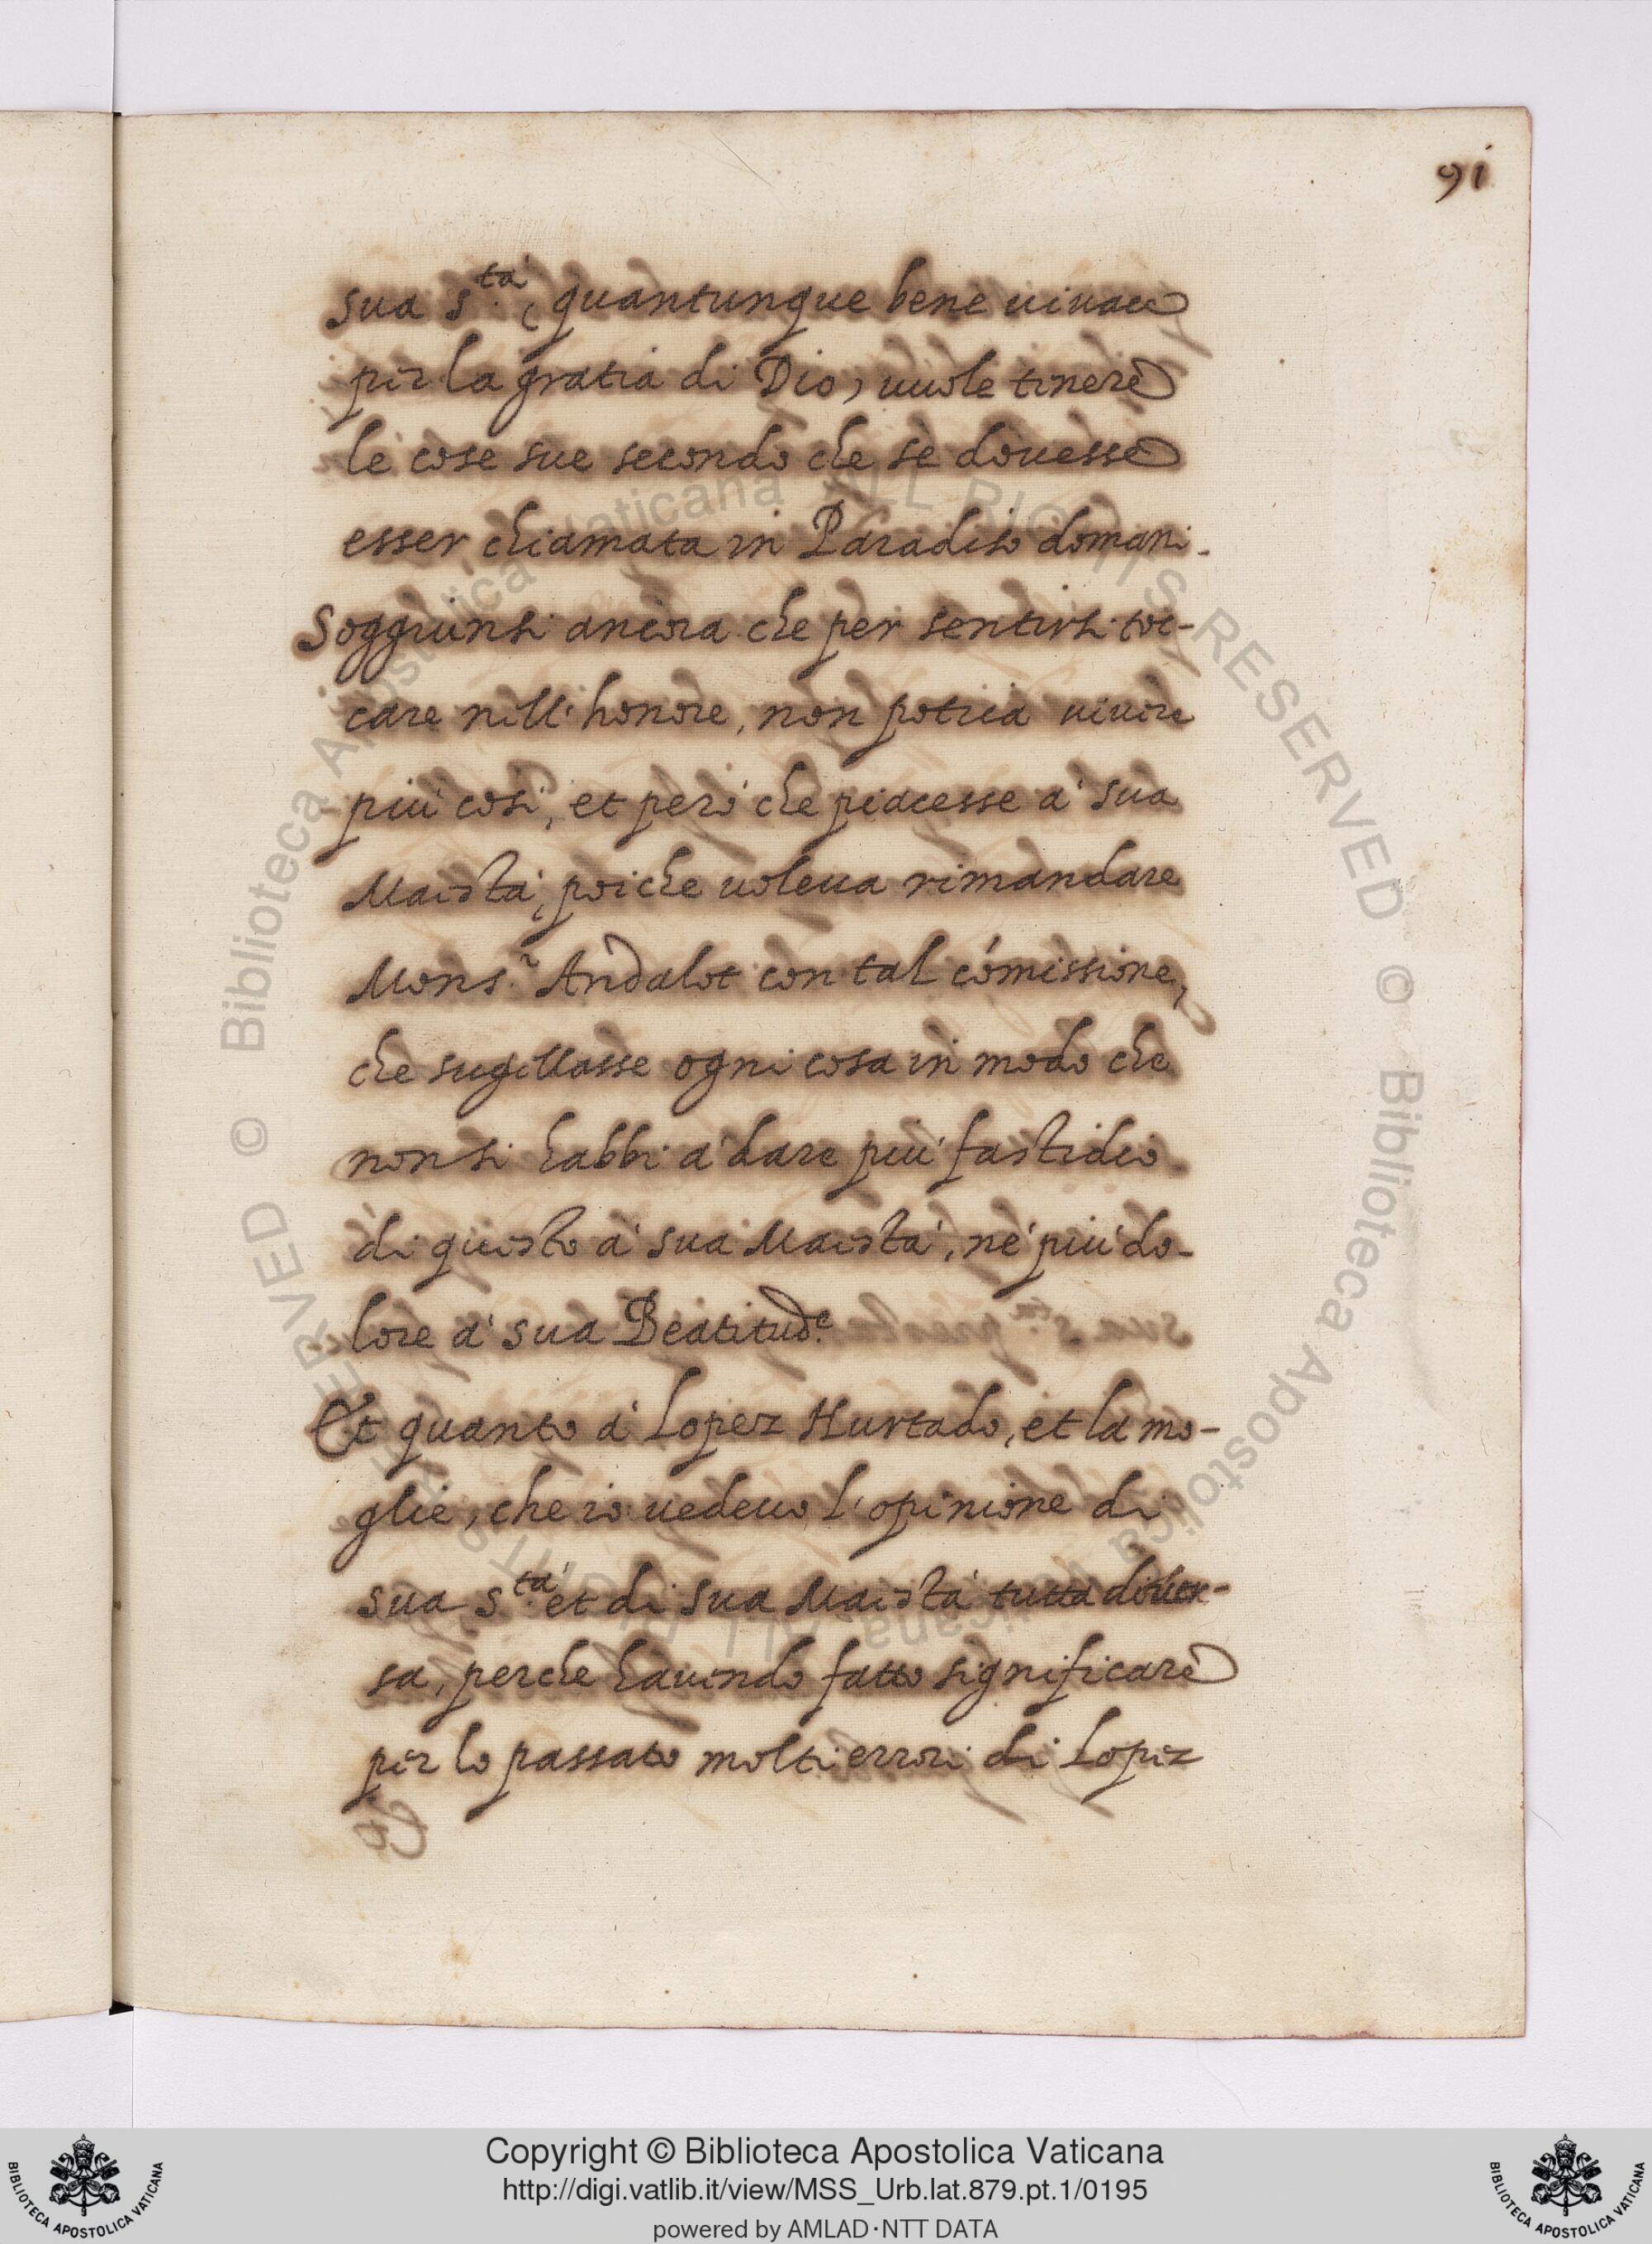 91
sua s.tà, quantunque bene uiuace
per la gratia di Dio, uuole tenere
le cose sue secondo che se douesse
esser chiamata in Paradiso domani.
Soggiunsi ancora che per sentirsi toc-
care nell'honore, non potria uiuere
più così, et però che piacesse à sua
Maestà, poiche uoleua rimandare
Mons.r Andalot con tal cómissione,
che sugillasse ogni cosa in modo che
non si habbi à dare più fastidio
di questo à sua Maestà, nè più do-
lore à sua Beatitud.e
Et quanto à Lopez Hurtado, et la mo-
glie, che io uedeuo l'opinione di
sua s.tà et di sua Maestà tutta diuer-
sa, perche hauendo fatto significare
per lo passato molti errori di Lopez
© Biblioteca Apostolica Vaticana ALL RIGHTS RESERVED © Biblioteca Apostolica Vaticana ALL RIGHTS RESERVED
Copyright © Biblioteca Apostolica Vaticana
http://digi.vatlib.it/view/MSS_Urb.lat.879.pt.1/0195
powered by AMLAD·NTT DATA
BIBLIOTECA APOSTOLICA VATICANA
BIBLIOTECA APOSTOLICA VATICANA